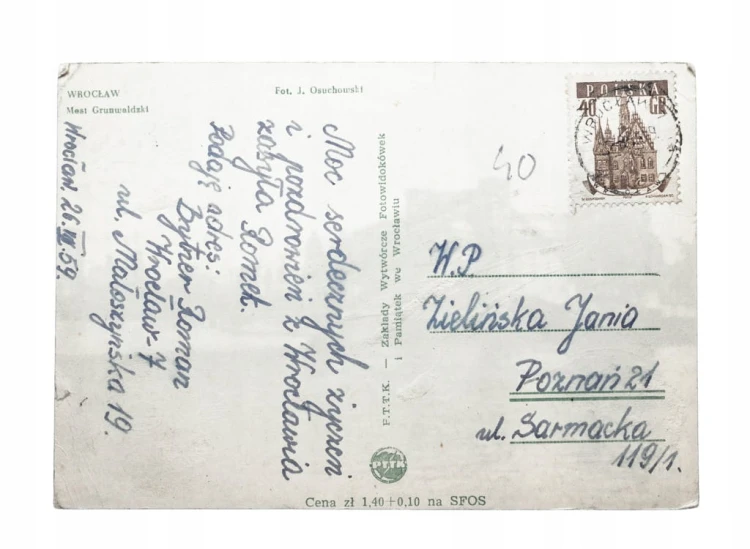 WROCŁAW
Most Grunwaldzki
Fot. J. Osuchowski
Moc serdecznych życzeń
i pozdrowień z Wrocławia
zasyła Romek.
Podaję adres:
Bytner Roman
Wrocław-7
ul. Małoszyńska 19.
Wrocław 26.VI.59.
P.T.T.K. — Zakłady Wytwórcze Fotowidokówek
i Pamiątek we Wrocławiu
PTTK
Cena zł 1,40+0,10 na SFOS
40
POLSKA
40 GR
WROCŁAW
W.P
Zielińska Jania
Poznań 21
ul. Sarmacka
119/1.